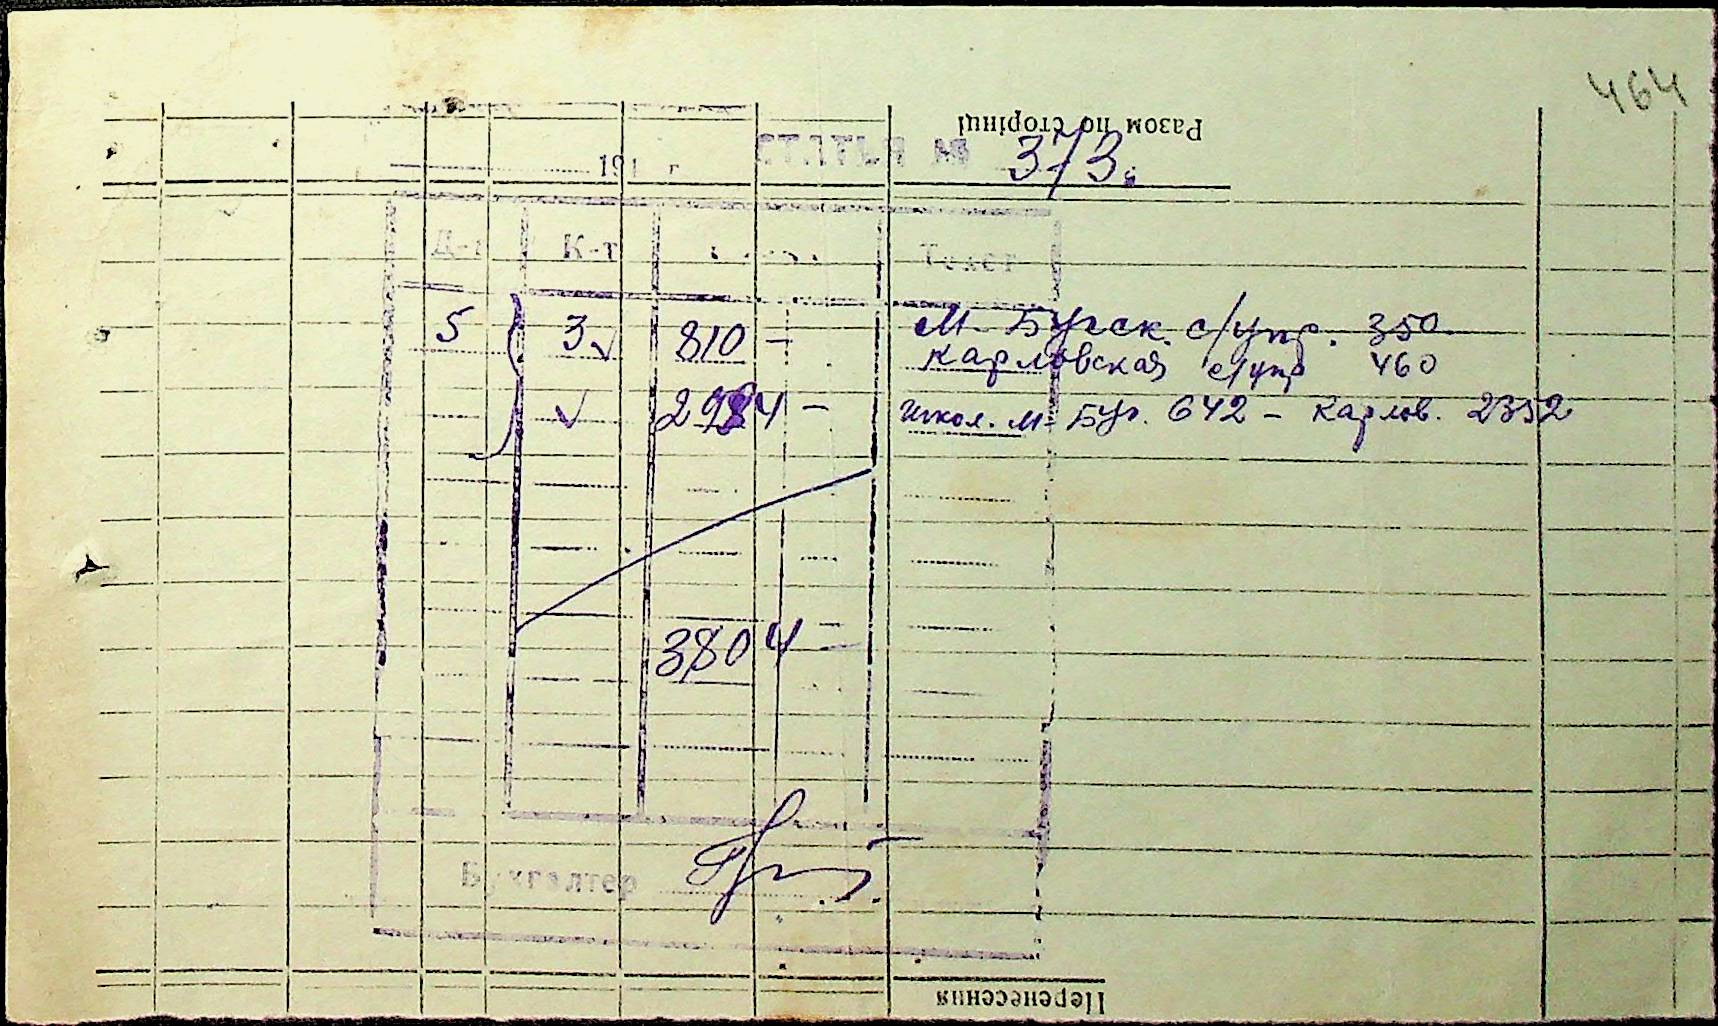 464
Разом по сторінці
194 г. СТАТЬЯ № 373.
Д-т К-т Текст
5 3 810 – М-Бугск. с/упр. 350
Карловская с/упр 460
2994 – Школ. М-Буг. 642 – Карлов. 2352
3804 –
Бухгалтер
Перенесення